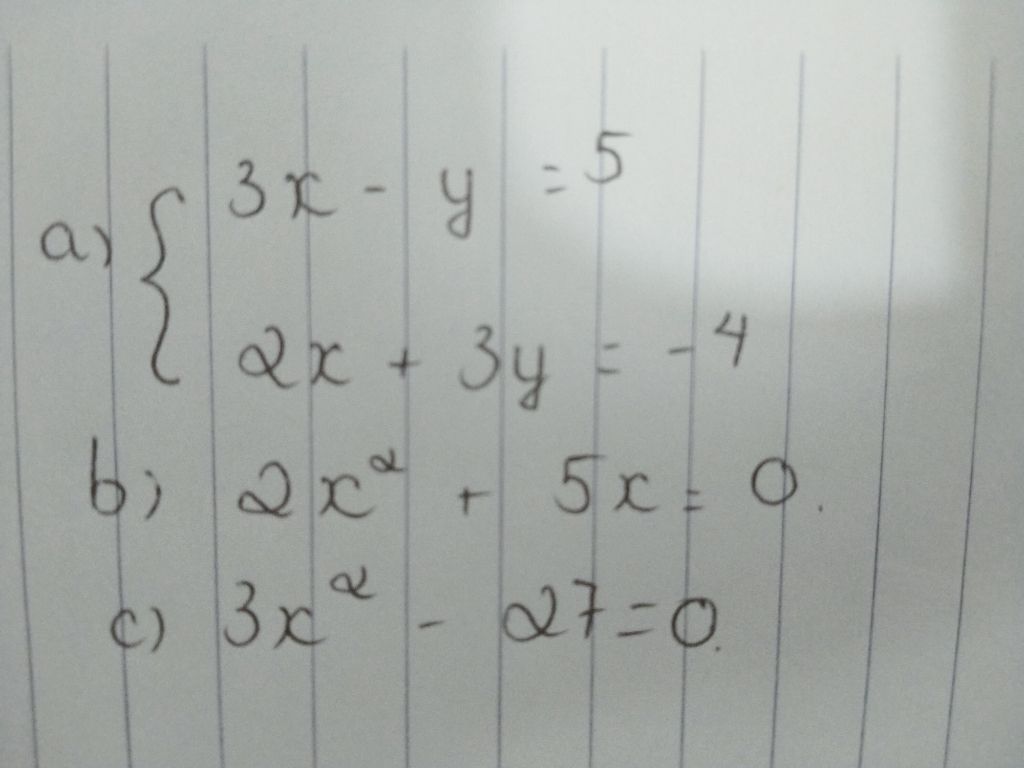 a) { 3x - y = 5
2x + 3y = -4
b) 2x² + 5x = 0.
c) 3x² - 27 = 0.